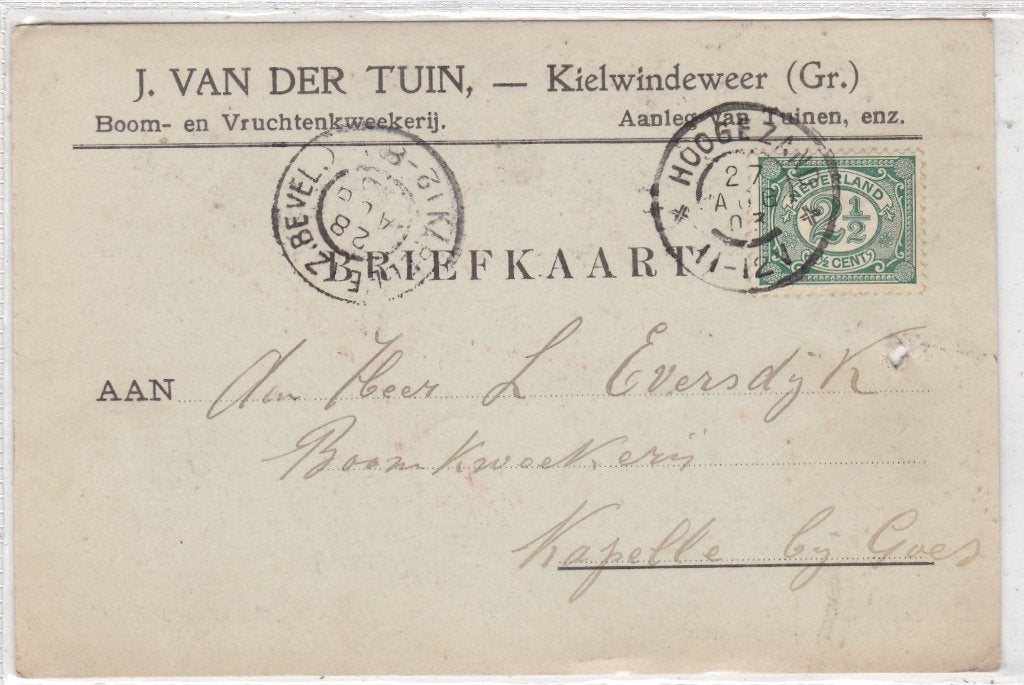 J. VAN DER TUIN, — Kielwindeweer (Gr.)
Boom- en Vruchtenkweekerij. Aanleg van Tuinen, enz.
HOOGEZAND
27
AUG
03
11-12V
NEDERLAND
2½
2½ CENT
Z.BEVEL.)
28
BRIEFKAART
AAN den Heer L Eversdijk
Boomkweekerij
Kapelle bij Goes